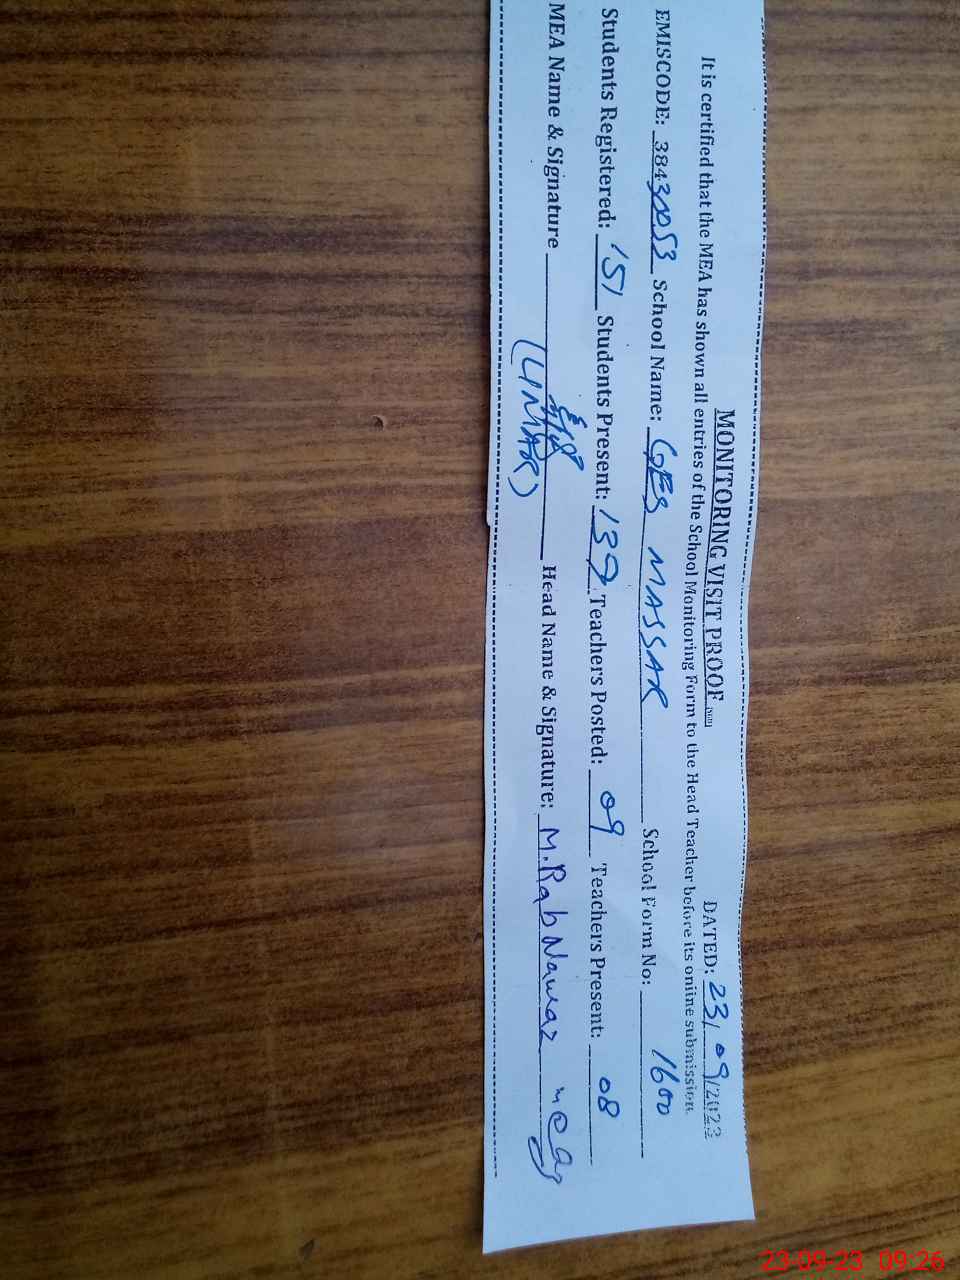 MONITORING VISIT PROOF
DATED: 23/09/2023
It is certified that the MEA has shown all entries of the School Monitoring Form to the Head Teacher before its online submission.
EMISCODE: 38430053 School Name: GES MASSAR School Form No: 1600
Students Registered: 151 Students Present: 139 Teachers Posted: 09 Teachers Present: 08
MEA Name & Signature (UMAR) Head Name & Signature: M. Rab Nawaz
23-09-23 09:26